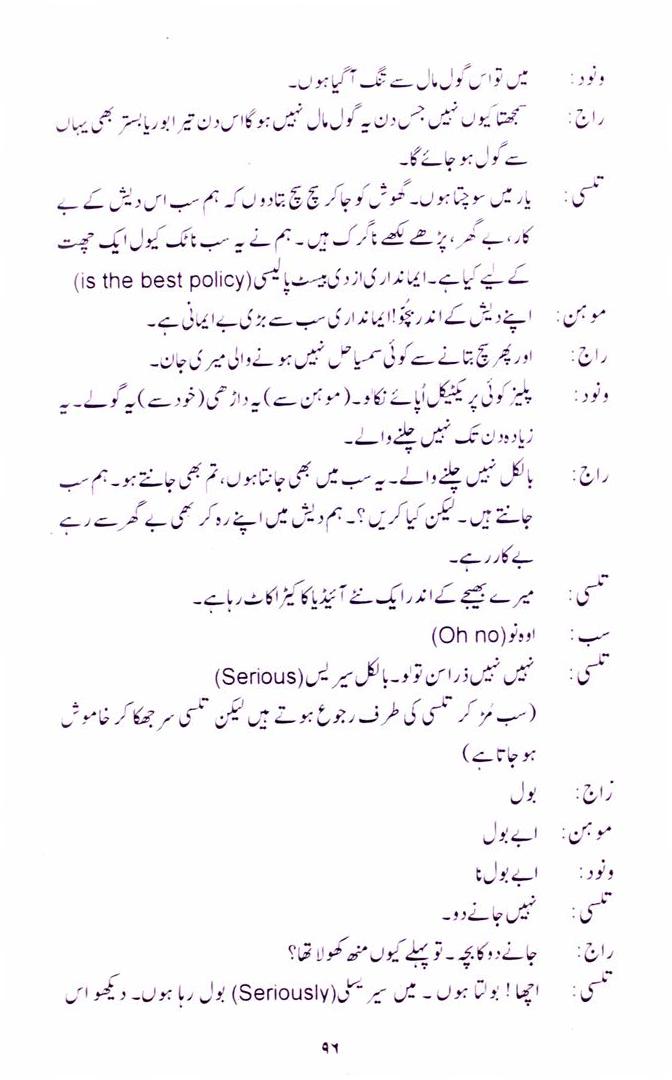 ونود: میں تو اس گول مال سے تنگ آ گیا ہوں۔
راج: سمجھتا کیوں نہیں جس دن یہ گول مال نہیں ہو گا اس دن تیرا بوریا بستر بھی یہاں
سے گول ہو جائے گا۔
تلسی: یار میں سوچتا ہوں۔ گھوش کو جا کر سچ سچ بتا دوں کہ ہم سب اس دیش کے بے
کار، بے گھر، پڑھے لکھے ناگرک ہیں۔ ہم نے یہ سب ناٹک کیول ایک چھت
کے لیے کیا ہے۔ ایمانداری از دی بیسٹ پالیسی (is the best policy)
موہن: اپنے دیش کے اندر بچّو! ایمانداری سب سے بڑی بے ایمانی ہے۔
راج: اور پھر سچ بتانے سے کوئی سمسیا حل نہیں ہونے والی میری جان۔
ونود: پلیز کوئی پریکٹیکل اُپائے نکالو۔ (موہن سے) یہ داڑھی (خود سے) یہ گولے۔ یہ
زیادہ دن تک نہیں چلنے والے۔
راج: بالکل نہیں چلنے والے۔ یہ سب میں بھی جانتا ہوں، تم بھی جانتے ہو۔ ہم سب
جانتے ہیں۔ لیکن کیا کریں؟۔ ہم دیش میں اپنے رہ کر بھی بے گھر سے رہے
بے کار رہے۔
تلسی: میرے بھیجے کے اندر ایک نئے آئیڈیا کا کیڑا کاٹ رہا ہے۔
سب: اوہ نو (Oh no)
تلسی: نہیں نہیں ذرا سن تو لو۔ بالکل سیریس (Serious)
(سب مُڑ کر تلسی کی طرف رجوع ہوتے ہیں لیکن تلسی سر جھکا کر خاموش
ہو جاتا ہے)
راج: بول
موہن: ابے بول
ونود: ابے بول نا
تلسی: نہیں جانے دو۔
راج: جانے دو کا بچہ۔ تو پہلے کیوں منھ کھولا تھا؟
تلسی: اچھا! بولتا ہوں۔ میں سیریسلی (Seriously) بول رہا ہوں۔ دیکھو اس
۹۶